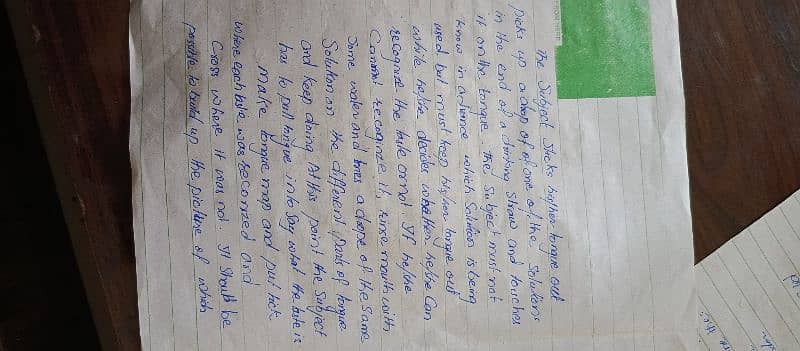 The Subject Sticks his/her tongue out
picks up a drop of of one of the Solutions
in the end of a drinking Straw and touches
it on the tongue. The Subject must not
know in advance which Solution is being
used but must keep his/her tongue out
while he/she decides whether he/she Can
recognize the taste or not. If he/she
Cannot recognize it, rinse mouth with
Some water and tries a drope of the Same
Solution on the different parts of tongue
and keep doing. At this point the Subject
has to pull tongue in to Say what the taste is
make tongue map and put tick
where each taste was reconized and
Cross where it was not. It Should be
possible to build up the picture of which